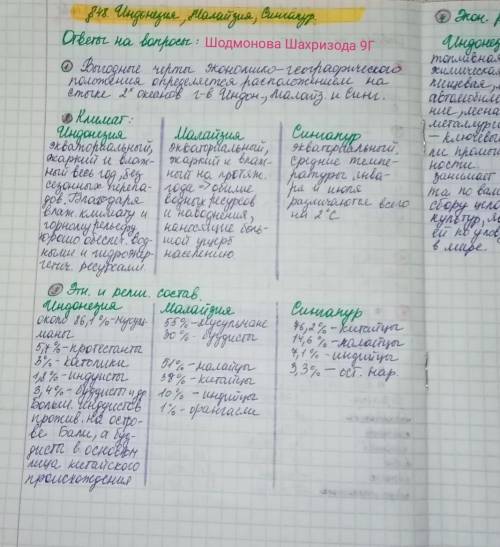 §48. Индонезия, Малайзия, Сингапур.
Ответы на вопросы: Шодмонова Шахризода 9Г
① Выгодные черты экономико-географического
положения определяется расположением на
стыке 2х океанов г-в Индон., Малайз и Синг.
② Климат:
Индонезия
экваториальный,
жаркий и влаж-
ный весь год, без
сезонных перепа-
дов. Благодаря
влаж климату и
горному рельефу,
хорошо обеспеч. вод-
ными и гидроэнер-
гетич. ресурсами
Малайзия
экваториальный,
жаркий и влаж-
ный на протяж.
года => обилие
водных ресурсов
и наводнения,
наносящие боль-
шой ущерб
населению
Сингапур
экваториальный.
Средние темпе-
ратуры янва-
ря и июля
различаются всего
на 2°С
③ Этн. и религ. состав.
Индонезия
около 86,1%-мусуль-
маны
5,7%-протестанты
3%-католики
1,8%-индуисты
3,4%-буддисты и др.
Больш. индуистов
прожив. на остро-
ве Бали, а буд-
дисты в основном
лица китайского
происхождения
Малайзия
55%-мусульмане
30%-буддисты
51%-малайцы
38%-китайцы
10%-индийцы
1%-орангасли
Сингапур
76,2%-китайцы
14,6%-малайцы
7,1%-индийцы
3,3%-ост. нар.
④ Экон. р
Индонез
топливная
химическая
пищевая, л
автомобиле
ние,
металлур
- ключевы
ли промы
ности.
занимает
та по вал
сбору
культур,
ей по
в мире.